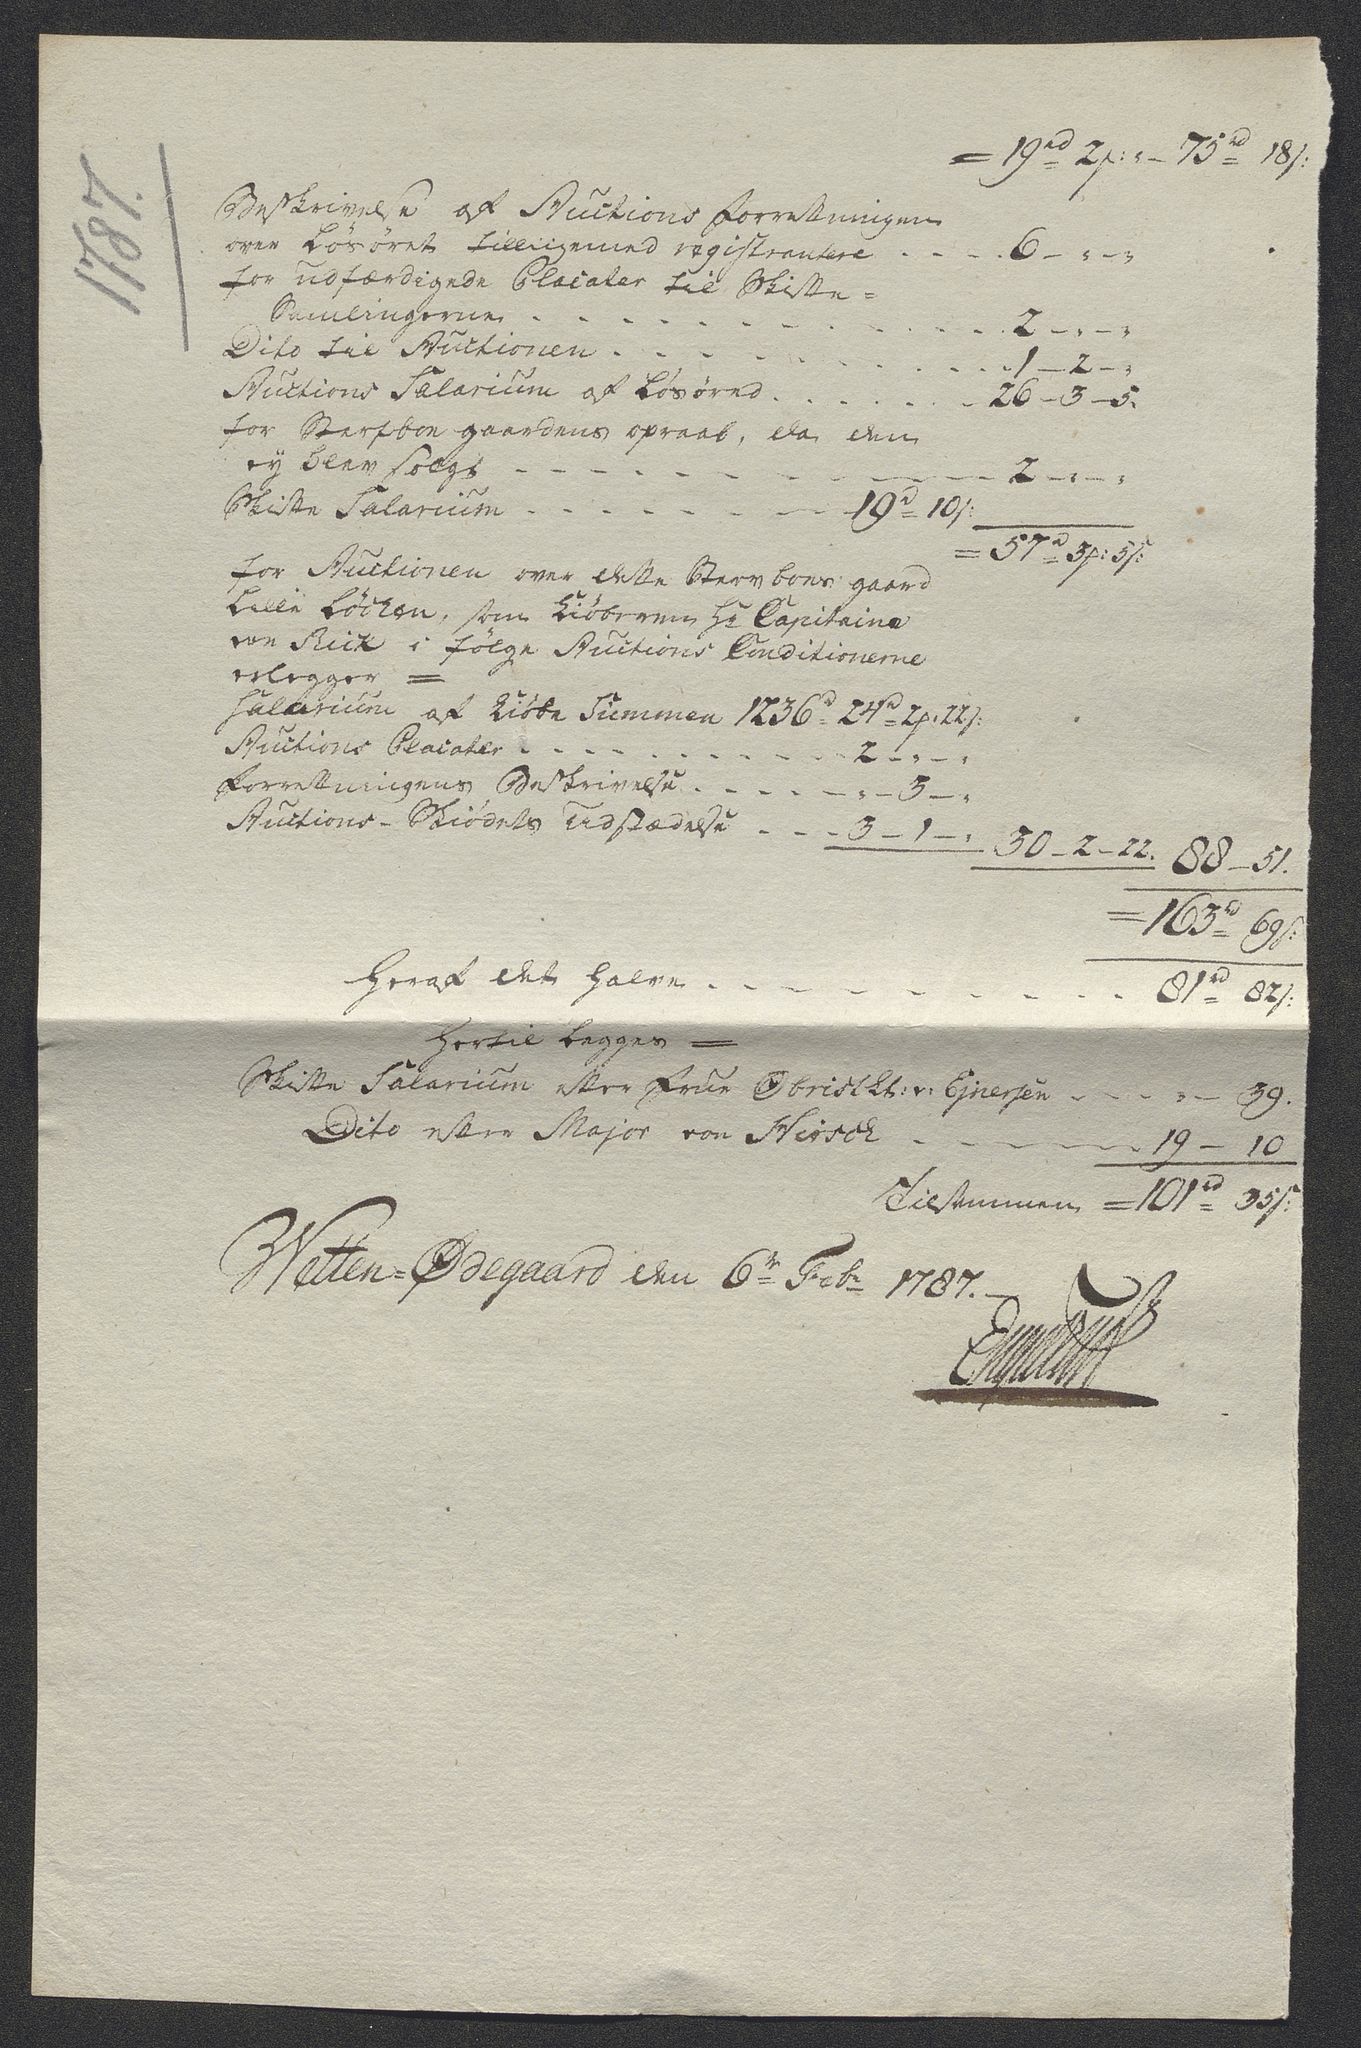 1787.
= 19rd 2p: „ – 75rd 18s:
Beskrivelse af Auctions forretningen
over Løsøret tilligemed registrantere . . . . 6 – „ – „
for udfærdigede Placater til Skifte =
Samlingerne . . . . . . . . . . . . 2 – „ – „
Dito til Auctionen . . . . . . . . . . 1 – 2 – „
Auctions Salarium af Løsøred . . . . . . 26 – 3 – 5.
for Sterfboe gaardens opraab, da den
ey blev solgt . . . . . . . . . . . . 2 – „ – „
Skifte Salarium . . . . . . . 19d 10s:
= 57d 3p: 5s:
for Auctionen over dette Stervboes gaard
Lille Løchen, som Kiøberen Hr Capitaine
von Rick i følge Auctions Conditionerne
erlegger =
Salarium af Kiøbe Summen 1236d 24d 2p: 22s:
Auctions Placater . . . . . . . . . 2 – „ – „
forretningens Beskrivelse . . . . . „ – 3 – „
Auctions – Skiødets Udstædelse . . . 3 – 1 – „ 30 – 2 – 22. 88 – 51.
= 163rd 69s:
Heraf det halve . . . . . . . . . . 81rd 82s:
Hertil legges =
Skifte Salarium efter Frue Obristlt: v: Ejnersen . . . . „ – 39.
Dito efter Major von Hirsch . . . . . . 19 – 10
Tilsammen = 101rd 35s:
Wetten = Ødegaard den 6te Febr 1787. –